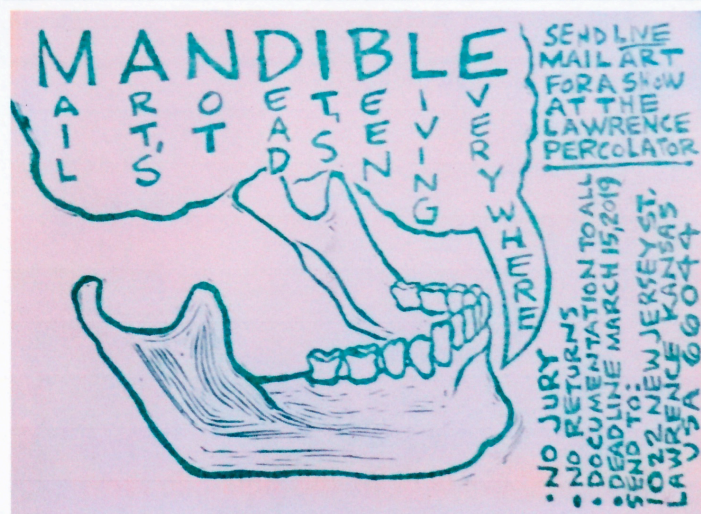 MANDIBLE
AIL
RT'S
OT
EAD
T'S
EEN
IVING
VERYWHERE
SEND LIVE
MAIL ART
FOR A SHOW
AT THE
LAWRENCE
PERCOLATOR
• NO JURY
• NO RETURNS
• DOCUMENTATION TO ALL
• DEADLINE MARCH 15, 2019
SEND TO:
1022 NEW JERSEY ST.
LAWRENCE KANSAS
USA 66044